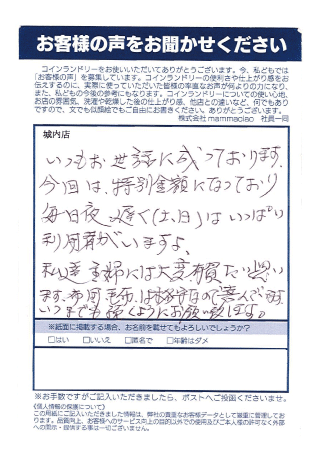 お客様の声をお聞かせください
コインランドリーをお使いいただいてありがとうございます。今、私どもでは
「お客様の声」を募集しています。コインランドリーの便利さや仕上がり感をお
伝えするのに、実際に使っていただいた皆様の率直なお声が何よりの力になり、
また、私どもの今後の参考にもなります。コインランドリーについての使い心地、
お店の雰囲気、洗濯や乾燥した後の仕上がり感、他店との違いなど、何でもあり
ですので、文でも似顔絵でもご自由にお書きください。ありがとうございます。
株式会社 mammaciao 社員一同
城内店
いつもお世話に成っております。
今回は、特別金額になっており
毎日夜遅く(土、日)はいっぱい
利用者がいますよ。
私達主婦には大変有賀たい思い
ます。布団、毛布、は
いつまでも続くようにお願い致します。
※紙面に掲載する場合、お名前を載せてもよろしいでしょうか?
□はい □いいえ □匿名で □年齢はダメ
※お手数ですがご記入いただきましたら、ポストへご投函くださいませ。
《個人情報の保護について》
この用紙にご記入いただきました情報は、弊社の貴重なお客様データとして厳重に管理しており
ます。品質向上、お客様へのサービス向上の目的以外での使用及びご本人様の許可なく外部
への開示・提供する事は一切ございません。